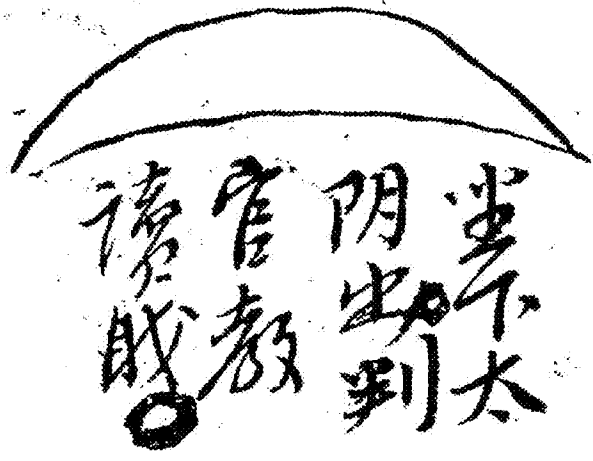 坐下太
阴出判
官教
讀